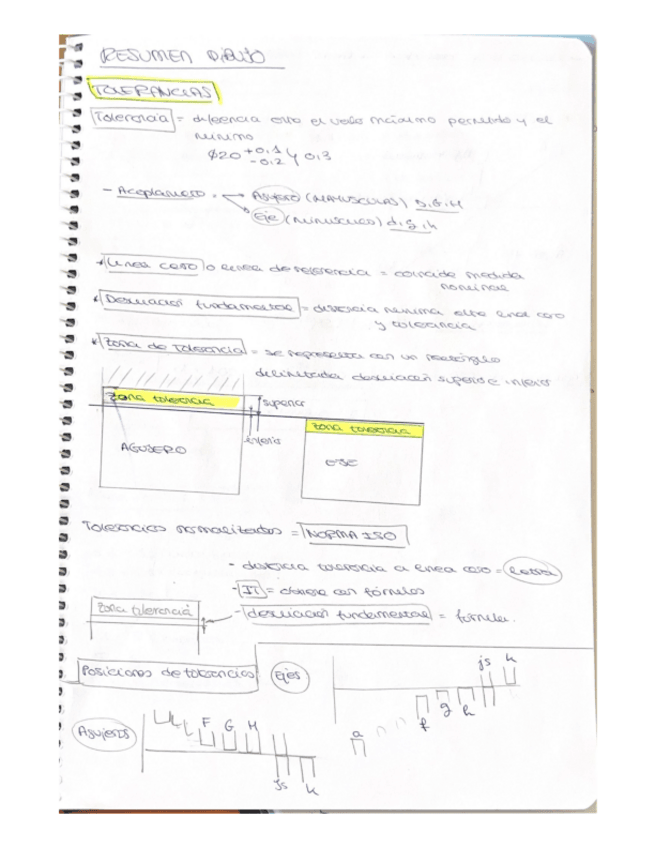 RESUMEN DIBUJO
TOLERANCIAS
Tolerancia = diferencia entre el valor máximo permitido y el
mínimo
Ø20 +0,1 -0,2 y 0,3
- Acoplamiento = Agujero (MAYUSCULAS) D.G.H
Eje (minusculas) d.g.h
* Linea cero o linea de referencia = coincide medida
nominal
* Desviacion fundamental = distancia minima entre linea cero
y tolerancia
* Zona de Tolerancia = se representa con un rectángulo
delimitada desviación superior e inferior
zona tolerancia
superior
zona tolerancia
inferior
AGUJERO
EJE
Tolerancias normalizadas = NORMA ISO
- distancia tolerancia a linea cero = Letra
- IT = obtiene con fórmulas
zona tolerancia
- desviacion fundamental = fórmula.
Posiciones de tolerancias
Ejes
js k
f g h
a
Agujeros
F G H
Js K